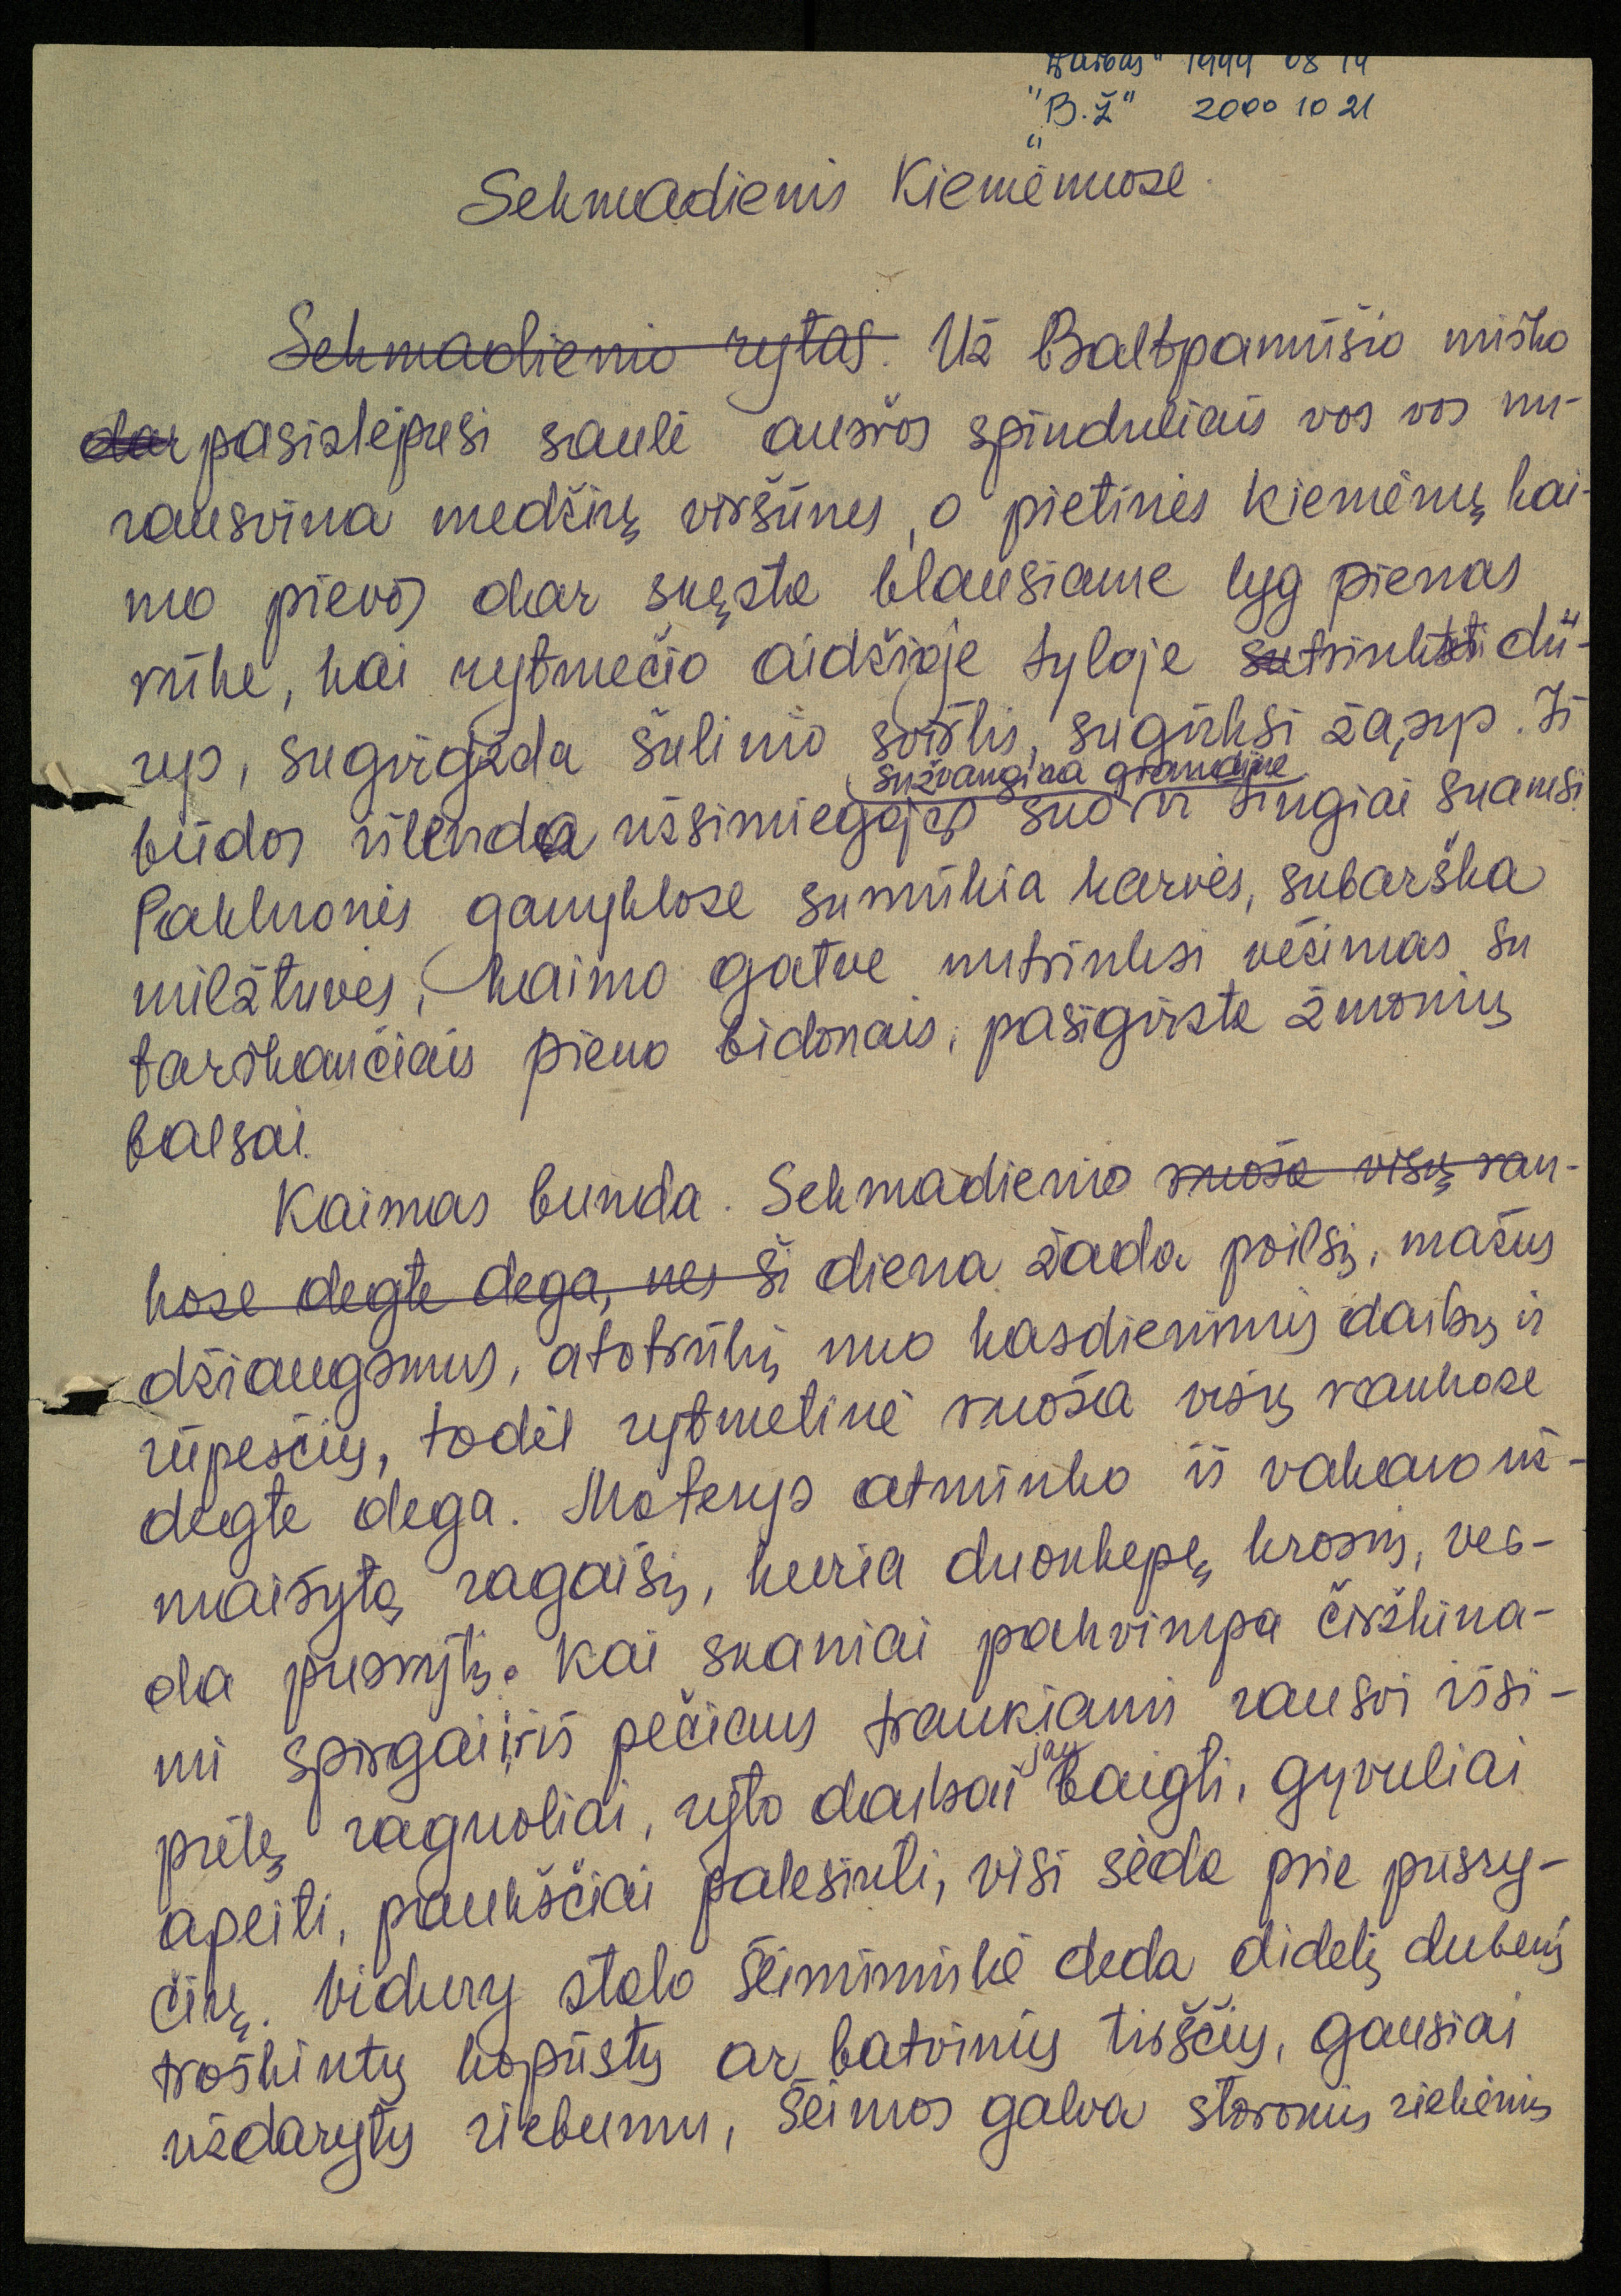 "Darbas" 1999 08 14
"B.Ž" 2000 10 21
"
Sekmadienis Kiemėnuose.
Sekmadienio rytas. Už Baltpamūšio miško
dar pasislėpusi saulė aušros spinduliais vos vos nu-
rausvina medžių viršūnes, o pietinės Kiemėnų kai-
mo pievos dar skęsta blausiame lyg pienas
rūke, kai rytmečio aidžioje tyloje sutrinksi du-
rys, sugirgžda šulinio svirtis, sugirksi žąsys. Iš
sužvangina grandine
būdos išlenda užsimiegojęs šuo ir tingiai skamsi.
Pakluonės ganyklose sumūkia karvės, subarška
milžtuvės, kaimo gatve nutrinksi vežimas su
tarškančiais pieno bidonais, pasigirsta žmonių
balsai.
Kaimas bunda. Sekmadienio ruoša visų ran-
kose degte dega, nes ši diena žada poilsį, mažus
džiaugsmus, atotrūkį nuo kasdieninių darbų ir
rūpesčių, todėl rytmetinė ruoša visų rankose
degte dega. Moterys atminko iš vakaro už-
maišytą ragaišį, kuria duonkepę krosnį, ver-
da pusrytį. Kai skaniai pakvimpa čirškina-
mi spirgai, iš pečiaus traukiami rausvi išsi-
jau
pūtę raguoliai, ryto darbai baigti, gyvuliai
apeiti, paukščiai palesinti, visi sėda prie pusry-
čių. Vidury stalo šeimininkė deda didelį dubenį
troškintų kopūstų ar batvinių tirščių, gausiai
uždarytų riebumu, šeimos galva storomis riekėmis